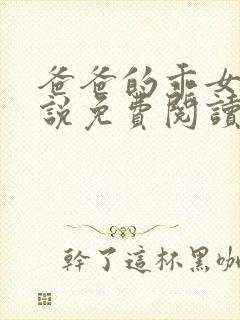 爸爸的乖女
說免費閱讀
幹了這杯黑咖